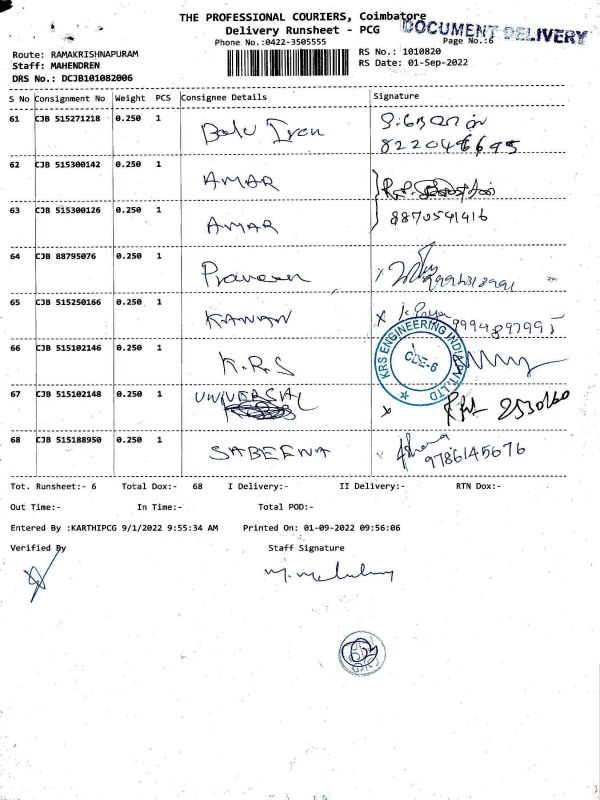 THE PROFESSIONAL COURIERS, Coimbatore
DOCUMENT DELIVERY
Delivery Runsheet - PCG
Page No.:6
Phone No.:0422-3505555
Route: RAMAKRISHNAPURAM
RS No.: 1010820
Staff: MAHENDREN
RS Date: 01-Sep-2022
DRS No.: DCJB101082006
S No Consignment No Weight PCS Consignee Details Signature
61 CJB 515271218 0.250 1
62 CJB 515300142 0.250 1 AMAR
63 CJB 515300126 0.250 1 AMAR 8870541416
64 CJB 88795076 0.250 1 Praveen
65 CJB 515250166 0.250 1 KANAN
66 CJB 515102146 0.250 1 K.R.S
KRS ENGINEERING INDIA PVT. LTD
CBE-6
67 CJB 515102148 0.250 1 UNIVERSAL
68 CJB 515188950 0.250 1 SABEENA 9786145676
Tot. Runsheet:- 6 Total Dox:- 68 I Delivery:- II Delivery:- RTN Dox:-
Out Time:- In Time:- Total POD:-
Entered By :KARTHIPCG 9/1/2022 9:55:34 AM Printed On: 01-09-2022 09:56:06
Verified By Staff Signature